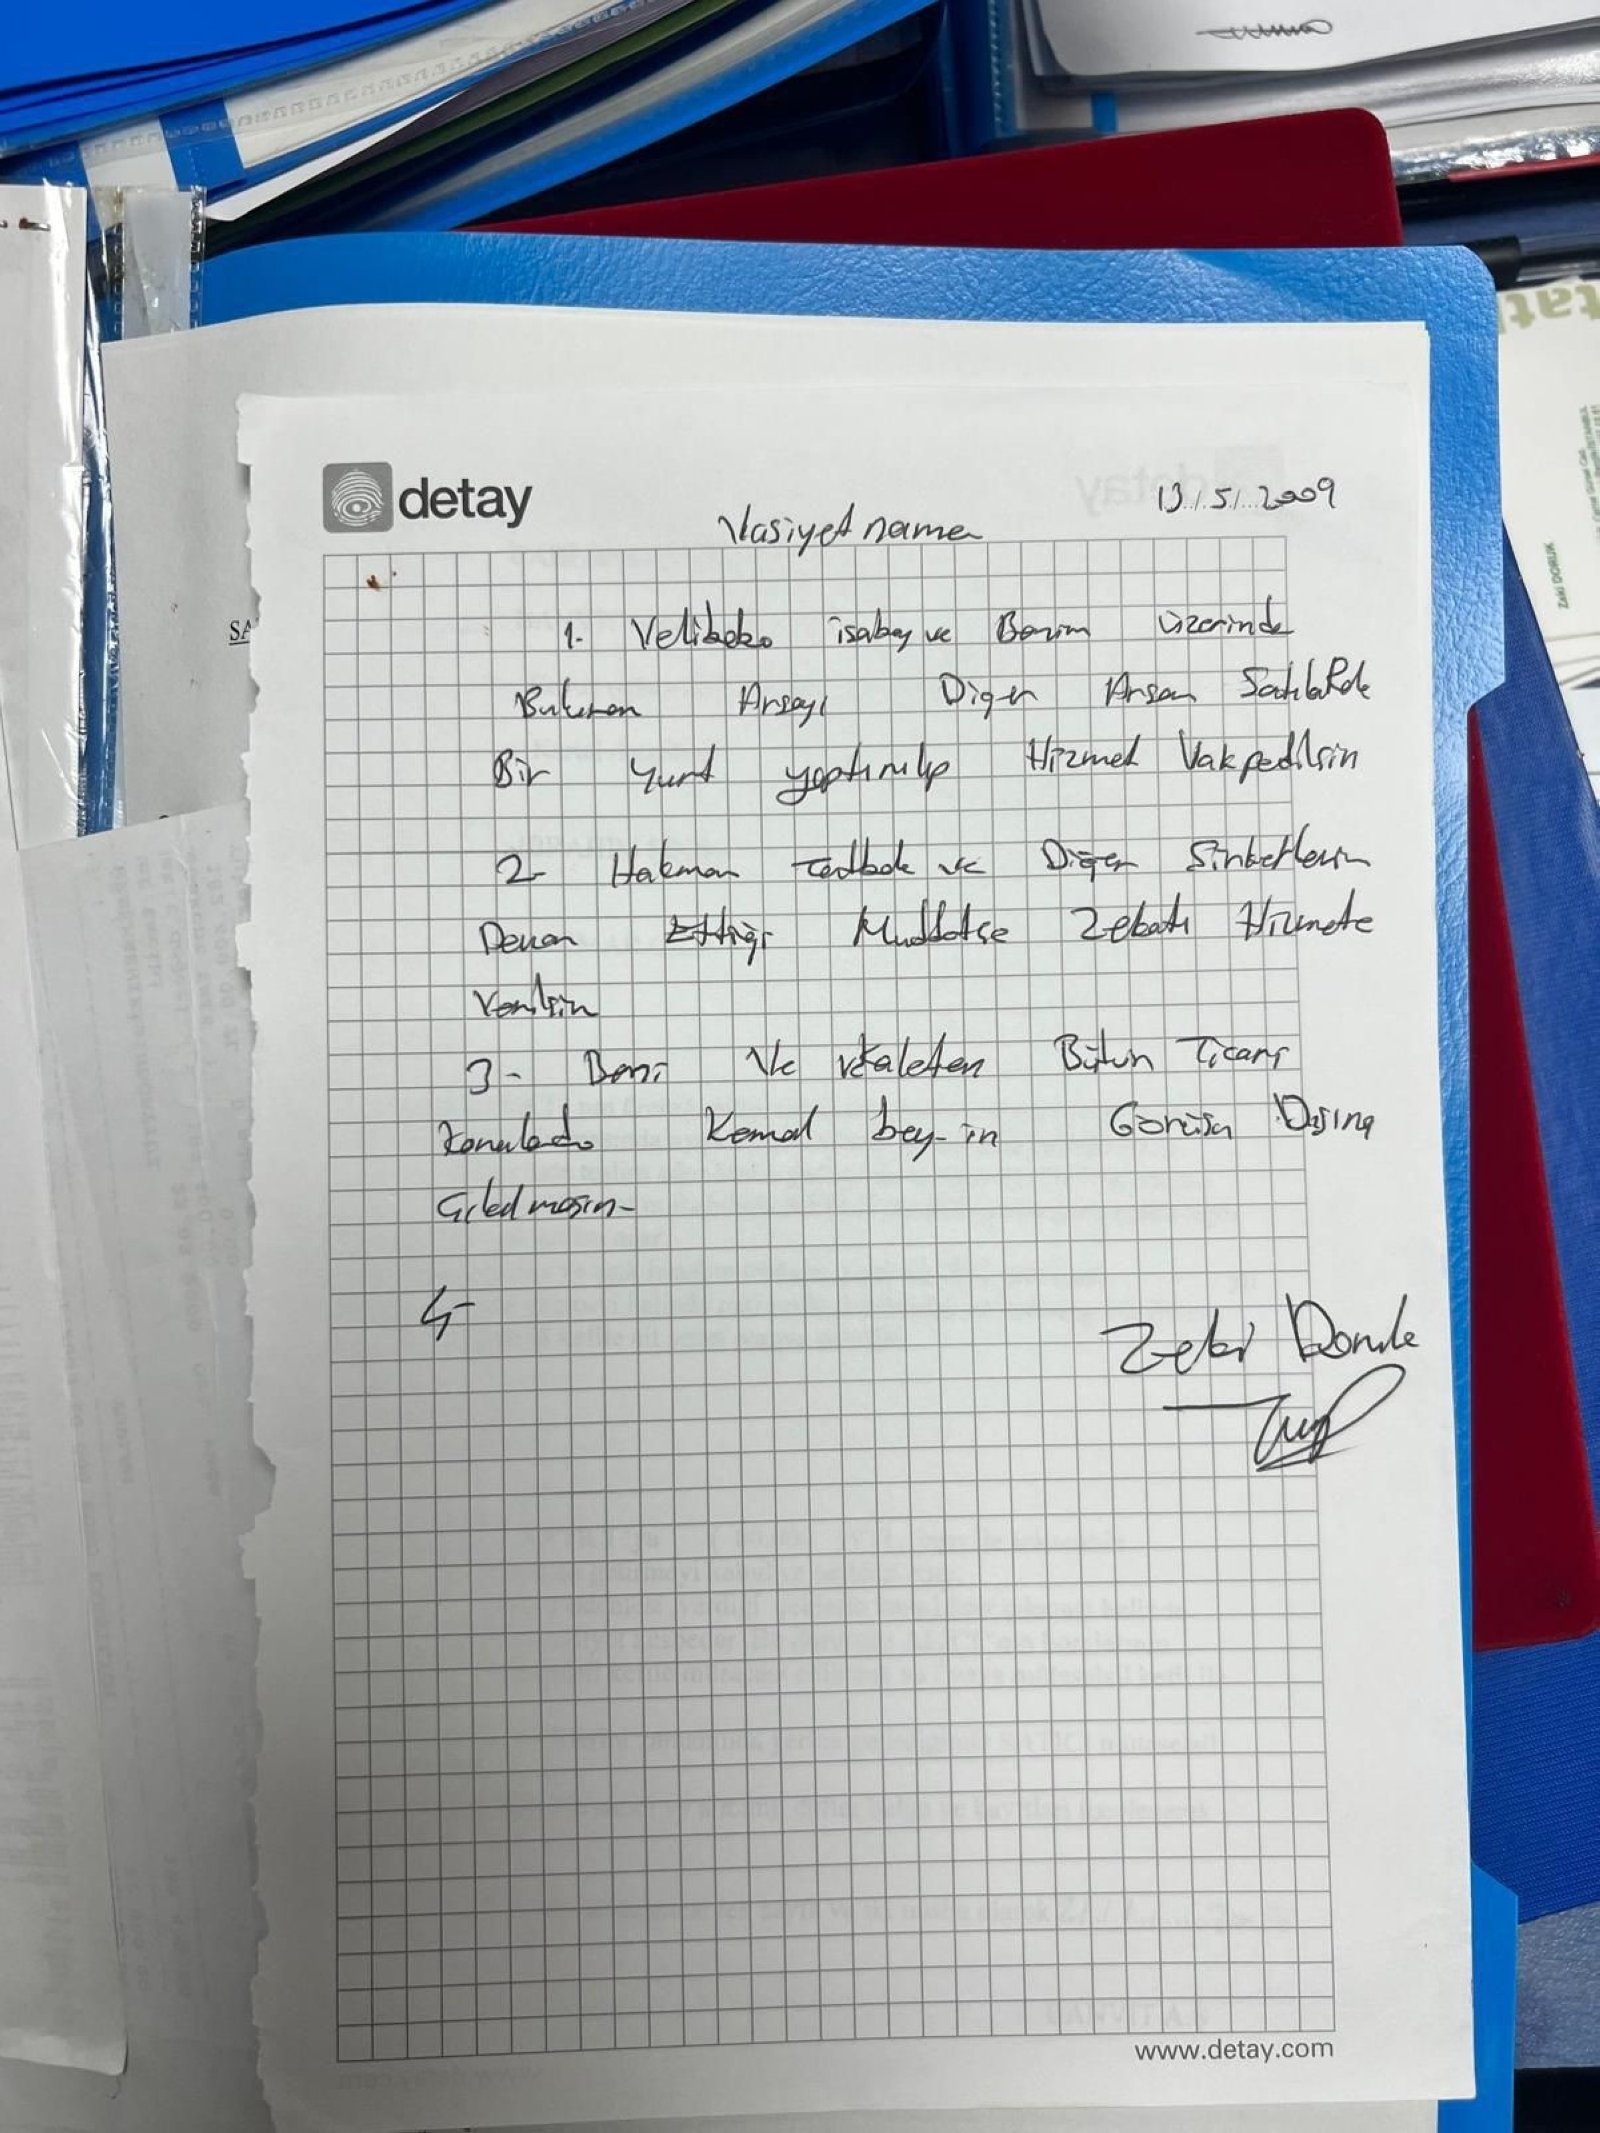 detay
13/5/2009
Vasiyetname
1- Velibaba isabey ve Benim üzerinde
Bulunan Arsayı Diğer Arsam Satılarak
Bir yurt yaptırılıp Hizmet Vakpedilsin
2- Hakman ve Diğer Şirketlerin
Devam Ettiği Muddetçe Zekatı Hizmete
Verilsin
3- Beni Ve vekaleten Bütün Ticari
Konularda Kemal bey-in Görüşü Dışına
Çıkılmasın-
4-
Zeki Doruk
Zeki DORUK
SA
www.detay.com